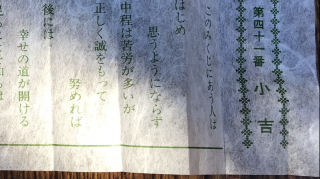 第四十一番 小吉
このみくじにあう人は
はじめ
思うようにならず
中程は苦労が多いが
正しく誠をもって
努めれば
後には
幸せの道が開ける